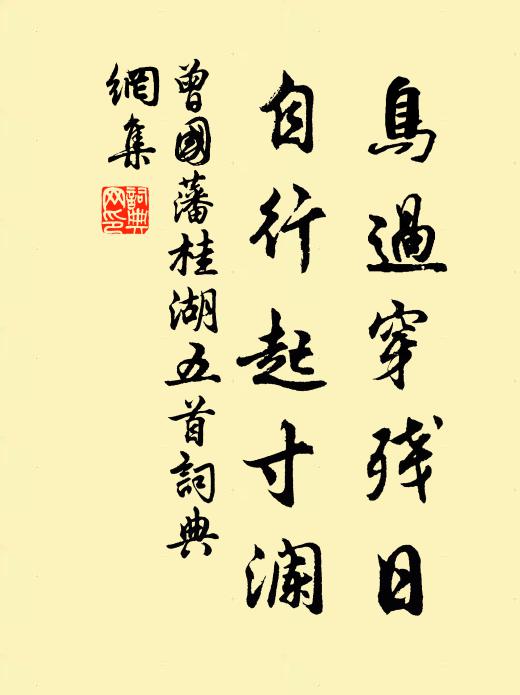 鳥過穿残日
自行起寸瀾
曾國藩桂湖五首詞典
網集
詞典
網印